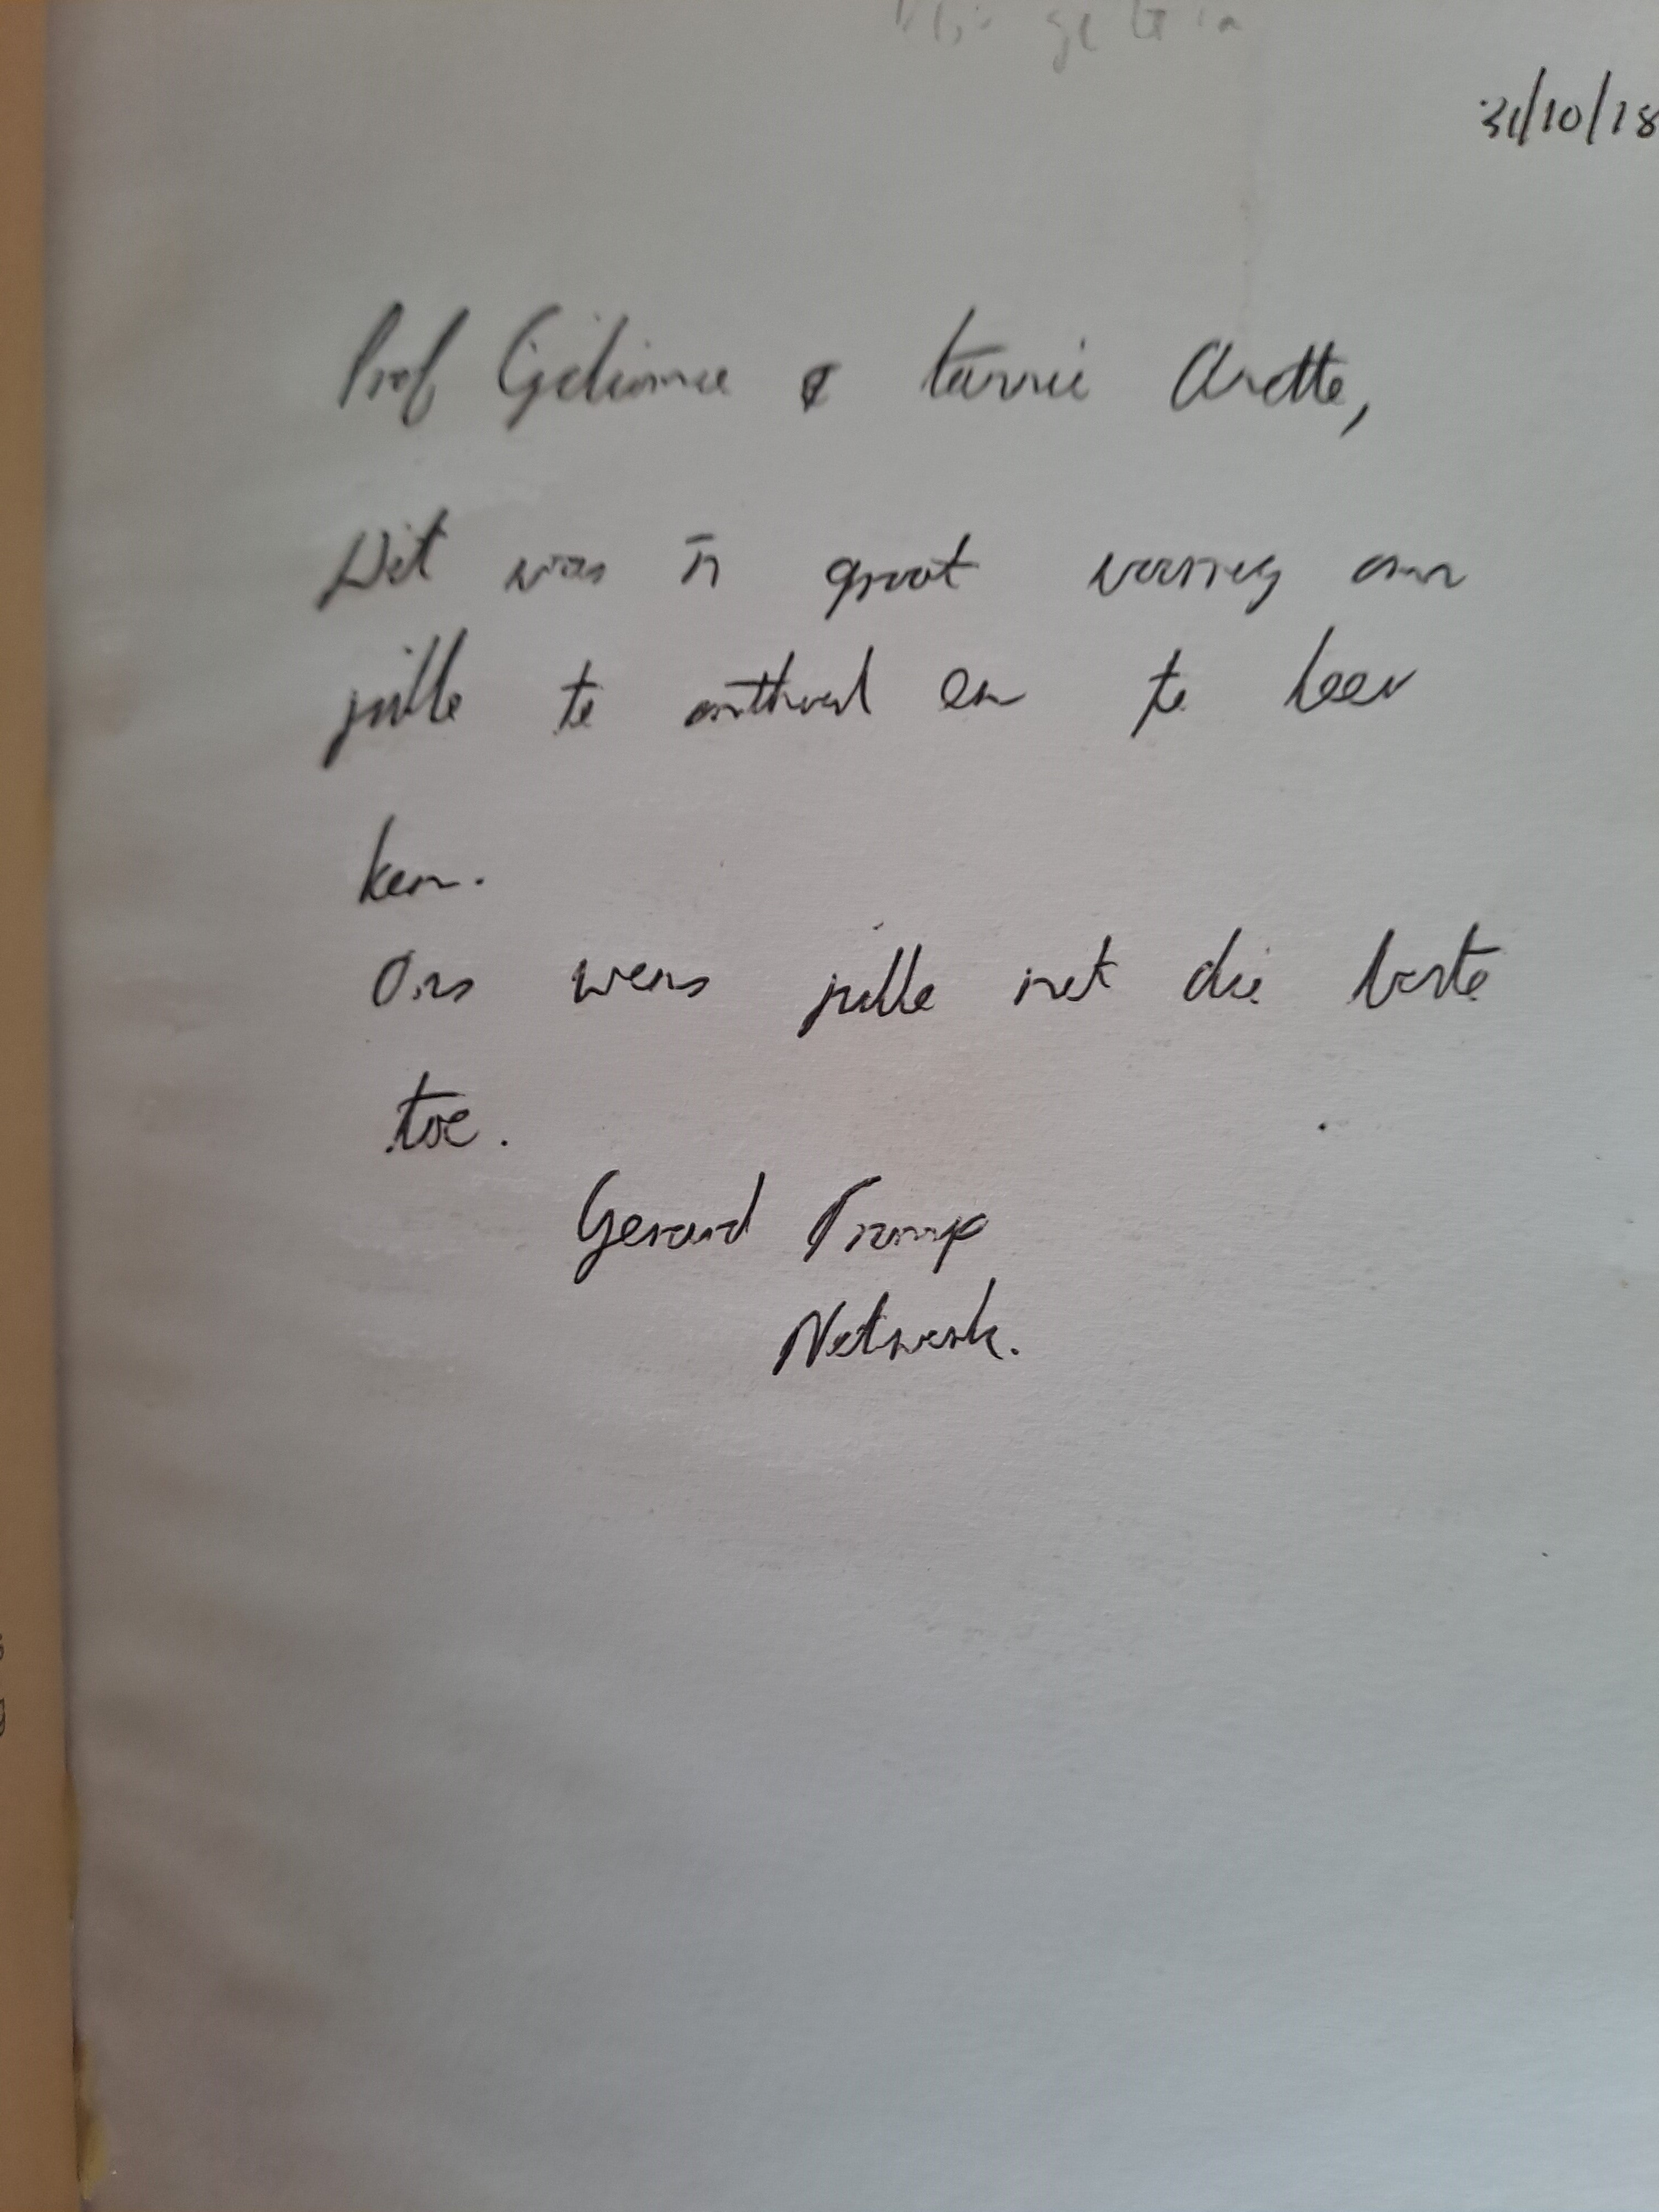 31/10/18
Prof Giliomee & tannie Anette,
Dit was 'n groot voorreg om
julle te onthaal en te leer
ken.
Ons wens julle net die beste
toe.
Gerard
Netwerk.